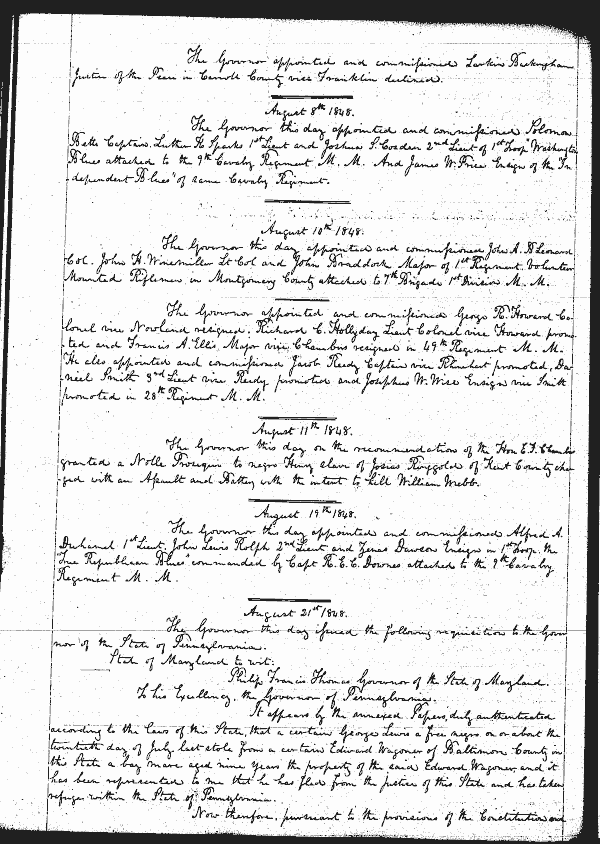 The Governor appointed and commissioned Larkin Buckingham
Justice of the Peace in Carroll County vice Franklin declined.
August 8th 1848.
The Governor this day appointed and commissioned Solomon
Betts Captain, Luther H. Sparks 1st Lieut and Joshua S. Corden 2nd Lieut of 1st Troop "Washington
Blues attached to the 9th Cavalry Regiment M. M. And James W. Price Ensign of the "In
dependent Blues" of same Cavalry Regiment.
August 10th 1848.
The Governor this day appointed and commissioned John A. B Leonard
Col. John H. Winemiller Lt Col and John Braddock Major of 1st Regiment Volunteer
Mounted Riflemen in Montgomery County attached to 7th Brigade 1st Division M. M.
The Governor appointed and commissioned George R. Howard Co
lonel vice Newland resigned. Richard C. Hollyday Lieut Colonel vice Howard promo
ted and Francis A. Ellis, Major vice Chambers resigned in 49th Regiment M. M.
He also appointed and commissioned Jacob Reedy Captain vice promoted, Da
niel Smith 3rd Lieut vice Reedy promoted and Josephus W. Wise Ensign vice Smith
promoted in 28th Regiment M. M.
August 11th 1848.
The Governor this day on the recommendation of the Hon E. F. Chambers
granted a Nolle Prosequi to negro Henry slave of Josias Ringgold of Kent County char
ged with an Assault and Battery with the intent to kill William Webb.
August 19th 1848.
The Governor this day appointed and commissioned Alfred A.
Duhamel 1st Lieut. John Lewis Rolph 2nd Lieut and Zenas Dawson Ensign in 1st Troop. the
True Republican Blues" commanded by Capt R. E. C. Downes attached to the 9th Cavalry
Regiment M. M.
August 21st 1848.
The Governor this day issued the following requisition to the Gover
nor of the State of Pennsylvania.
State of Maryland to wit:
Philip Francis Thomas Governor of the State of Maryland.
To his Excellency, the Governor of Pennsylvania.
It appears by the annexed Papers, duly authenticated
according to the Laws of this State, that a certain George Lewis a free negro on or about the
twentieth day of July last stole from a certain Edward Wagoner of Baltimore County in
this State a bay mare aged nine years the property of the said Edward Wagoner, and it
has been represented to me that he has fled from the justice of this State and has taken
refuge within the State of Pennsylvania.
Now therefore, pursuant to the provisions of the Constitution and